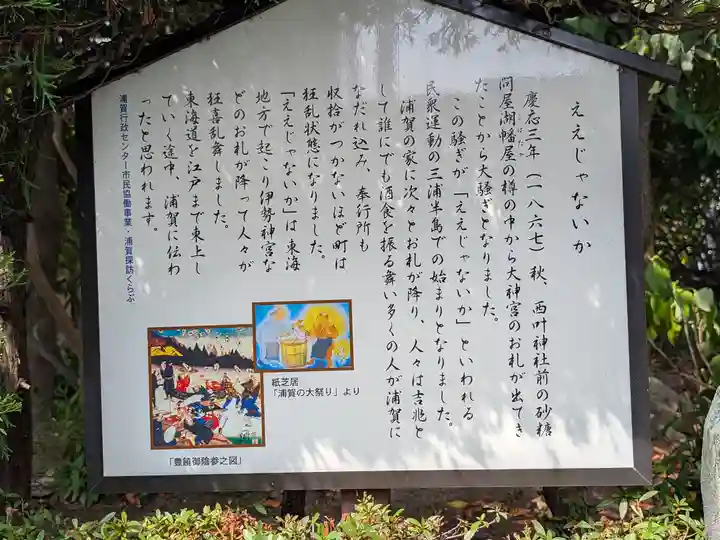 ええじゃないか
慶応三年（一八六七）秋、西叶神社前の砂糖
問屋湖幡屋の樽の中から大神宮のお札が出てき
たことから大騒ぎとなりました。
この騒ぎが「ええじゃないか」といわれる
民衆運動の三浦半島での始まりとなりました。
浦賀の家に次々とお札が降り、人々は吉兆と
して誰にでも酒食を振る舞い多くの人が浦賀に
なだれ込み、奉行所も
収拾がつかないほど町は
狂乱状態になりました。
「ええじゃないか」は東海
地方で起こり伊勢神宮な
どのお札が降って人々が
狂喜乱舞しました。
東海道を江戸まで東上し
ていく途中、浦賀に伝わ
ったと思われます。
浦賀行政センター市民協働事業・浦賀探訪くらぶ
紙芝居
「浦賀の大祭り」より
「豊饒御陰参之図」